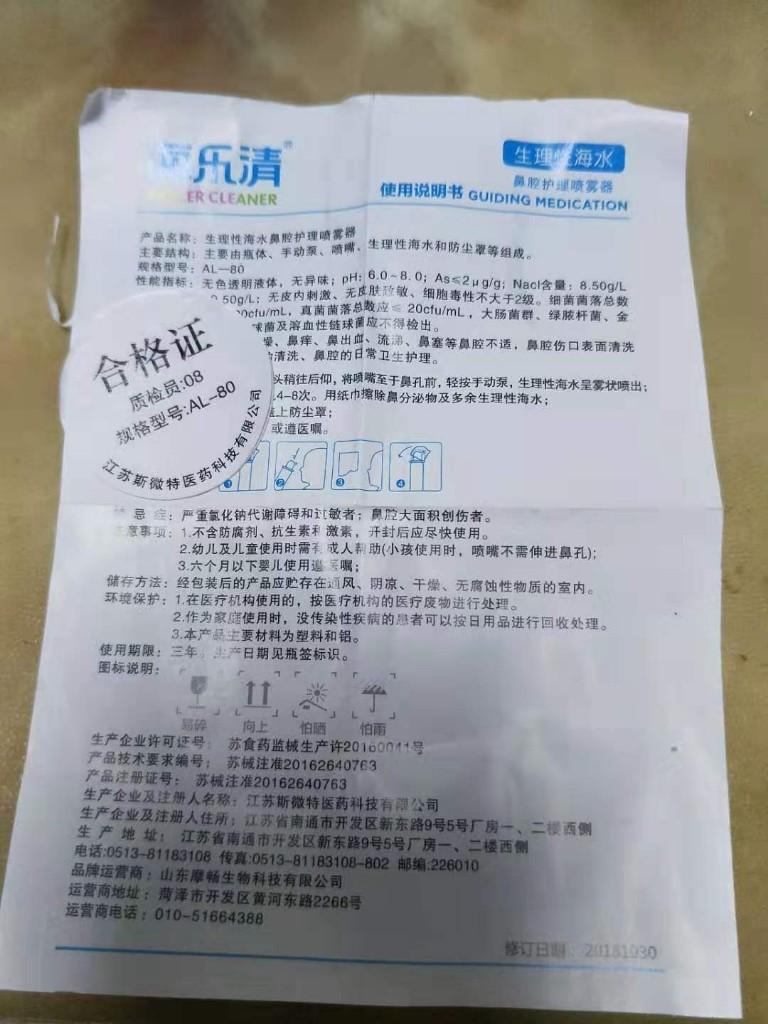 乐清®
ER CLEANER
生理性海水
鼻腔护理喷雾器
使用说明书 GUIDING MEDICATION
产品名称：生理性海水鼻腔护理喷雾器
主要结构：主要由瓶体、手动泵、喷嘴、生理性海水和防尘罩等组成。
规格型号：AL—80
性能指标：无色透明液体，无异味；pH：6.0~8.0；As≤2μg/g；Nacl含量：8.50g/L
.50g/L；无皮内刺激、无皮肤致敏、细胞毒性不大于2级。细菌菌落总数
0cfu/mL，真菌菌落总数应≤20cfu/mL，大肠菌群、绿脓杆菌、金
球菌及溶血性链球菌应不得检出。
燥、鼻痒、鼻出血、流涕、鼻塞等鼻腔不适，鼻腔伤口表面清洗
清洗、鼻腔的日常卫生护理。
头稍往后仰，将喷嘴至于鼻孔前，轻按手动泵，生理性海水呈雾状喷出；
4-8次。用纸巾擦除鼻分泌物及多余生理性海水；
上防尘罩；
或遵医嘱。
合格证
质检员:08
规格型号:AL-80
江苏斯微特医药科技有限公司
❶ ❷ ❸ ❹
忌症：严重氯化钠代谢障碍和过敏者；鼻腔大面积创伤者。
注意事项：1.不含防腐剂、抗生素和激素，开封后应尽快使用。
2.幼儿及儿童使用时需有成人帮助(小孩使用时，喷嘴不需伸进鼻孔)；
3.六个月以下婴儿使用遵医嘱；
储存方法：经包装后的产品应贮存在通风、阴凉、干燥、无腐蚀性物质的室内。
环境保护：1.在医疗机构使用的，按医疗机构的医疗废物进行处理。
2.作为家庭使用时，没传染性疾病的患者可以按日用品进行回收处理。
3.本产品主要材料为塑料和铝。
使用期限：三年，生产日期见瓶签标识。
图标说明：
易碎 向上 怕晒 怕雨
生产企业许可证号：苏食药监械生产许20160041号
产品技术要求编号：苏械注准20162640763
产品注册证号：苏械注准20162640763
生产企业及注册人名称：江苏斯微特医药科技有限公司
生产企业及注册人住所：江苏省南通市开发区新东路9号5号厂房一、二楼西侧
生 产 地 址：江苏省南通市开发区新东路9号5号厂房一、二楼西侧
电话:0513-81183108 传真:0513-81183108-802 邮编:226010
品牌运营商：山东摩畅生物科技有限公司
运营商地址：菏泽市开发区黄河东路2266号
运营商电话：010-51664388
修订日期：20181030